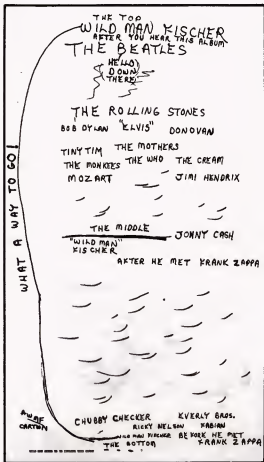 THE TOP
WILD MAN FISCHER
AFTER YOU HEAR THIS ALBUM
THE BEATLES
HELLO
DOWN
THERE
THE ROLLING STONES
BOB DYLAN "ELVIS" DONOVAN
TINY TIM THE MOTHERS
THE MONKEES THE WHO THE CREAM
MOZART JIMI HENDRIX
THE MIDDLE JOHNY CASH
"WILD MAN"
FISCHER
AFTER HE MET FRANK ZAPPA
WHAT A WAY TO GO!
CHUBBY CHECKER EVERLY BROS.
RICKY NELSON FABIAN
WILD MAN FISCHER BEFORE HE MET
THE BOTTOM FRANK ZAPPA
CARTOON